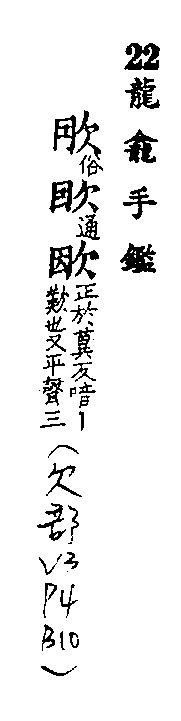 22龍龕手鑑
俗
通
欭
正於莫反喑丨
歎也又平聲三
(欠部
V3
P4
B10)